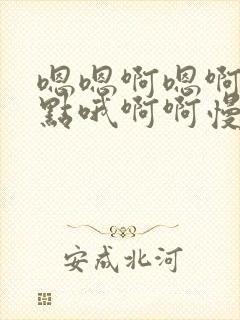 嗯嗯啊嗯啊
點哦啊啊慢
安成北河